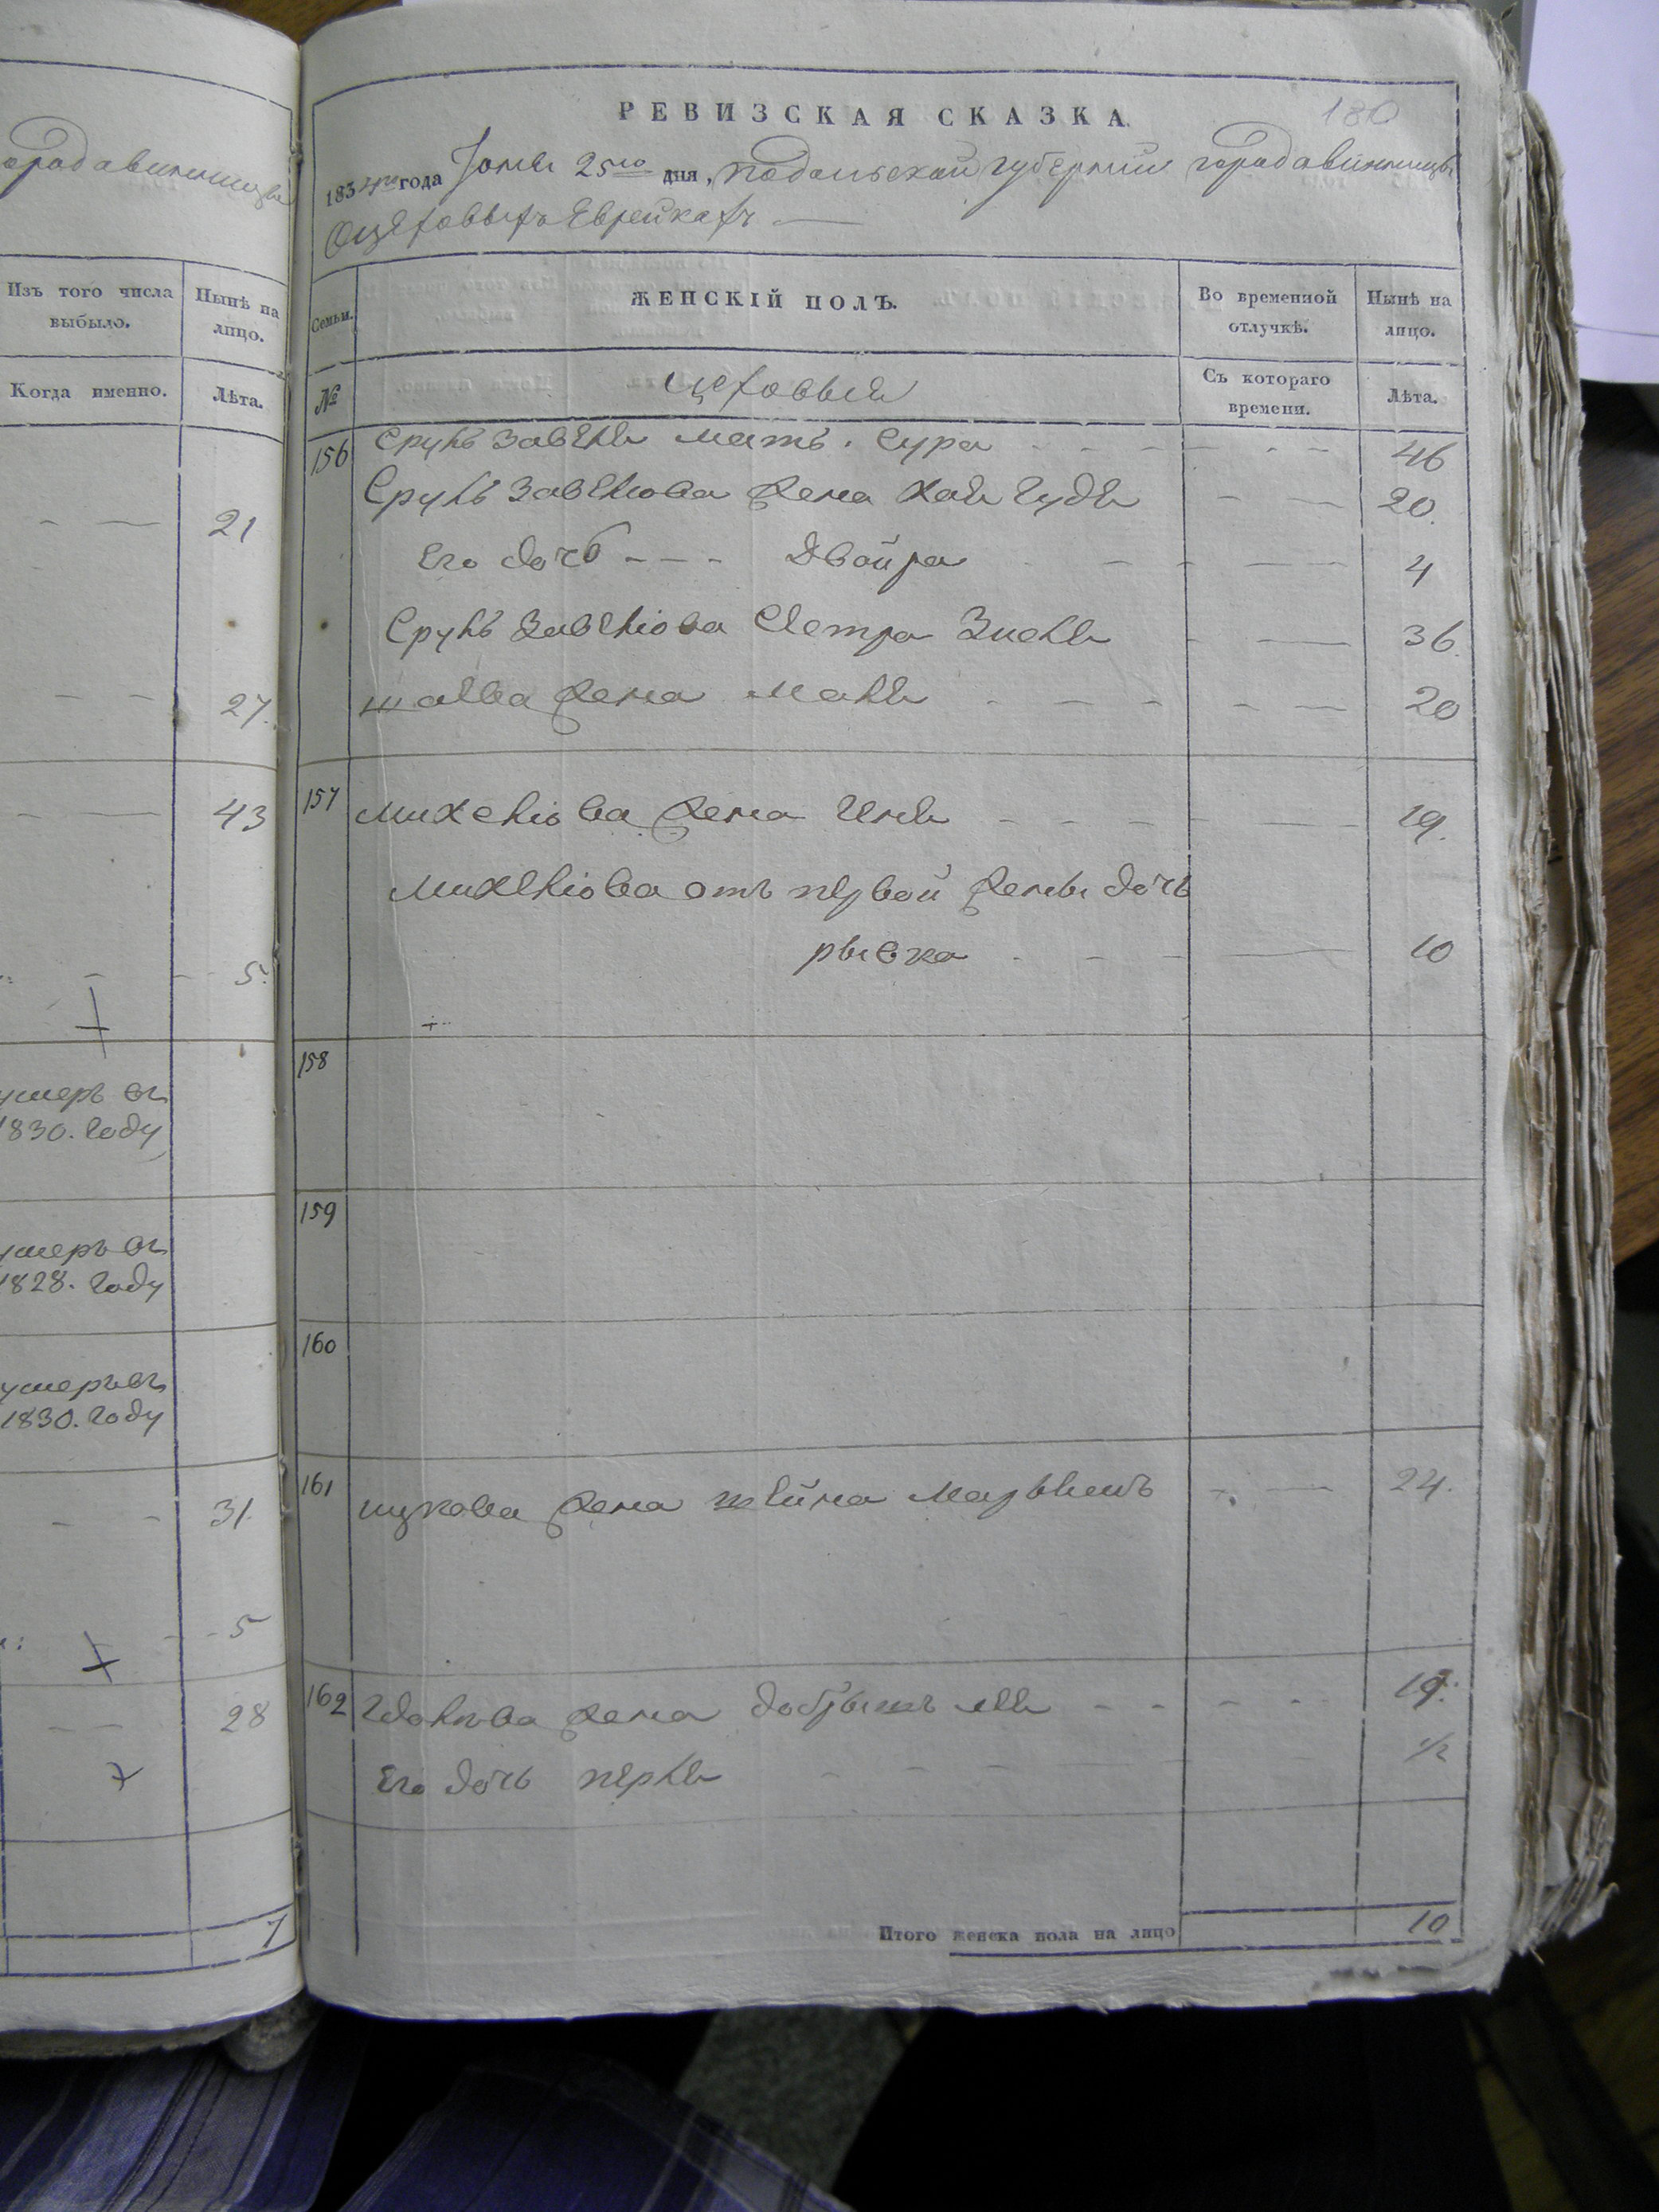 ородавинницы
Изъ того числа выбыло.
Нынѣ на лицо.
Когда именно.
Лѣта.
21
27.
43
5.
умеръ въ
1830. году
умеръ въ
1828. году
умеръ въ
1830. году
31.
5
28
7
180
РЕВИЗСКАЯ СКАЗКА.
1834го года Іюня 25го дня, подольской губерніи города винницы
О цеховыхъ Еврейкахъ
Семьи.
ЖЕНСКІЙ ПОЛЪ.
Во временной отлучкѣ.
Нынѣ на лицо.
№
цеховыя
Съ котораго времени.
Лѣта.
156 Сруль мать. Сура 46
Сруль жена Хая 20.
Его дочь Двойра 4
Сруль 36.
жена Маля 20
157 Михелiова жена 19.
Михелiова отъ первой жены дочь
рывка 10
158
159
160
161 ицкова жена шейна 24.
162 жена добрышъ лея 19.
Его дочь перля 1/2
Итого женска пола на лицо 10